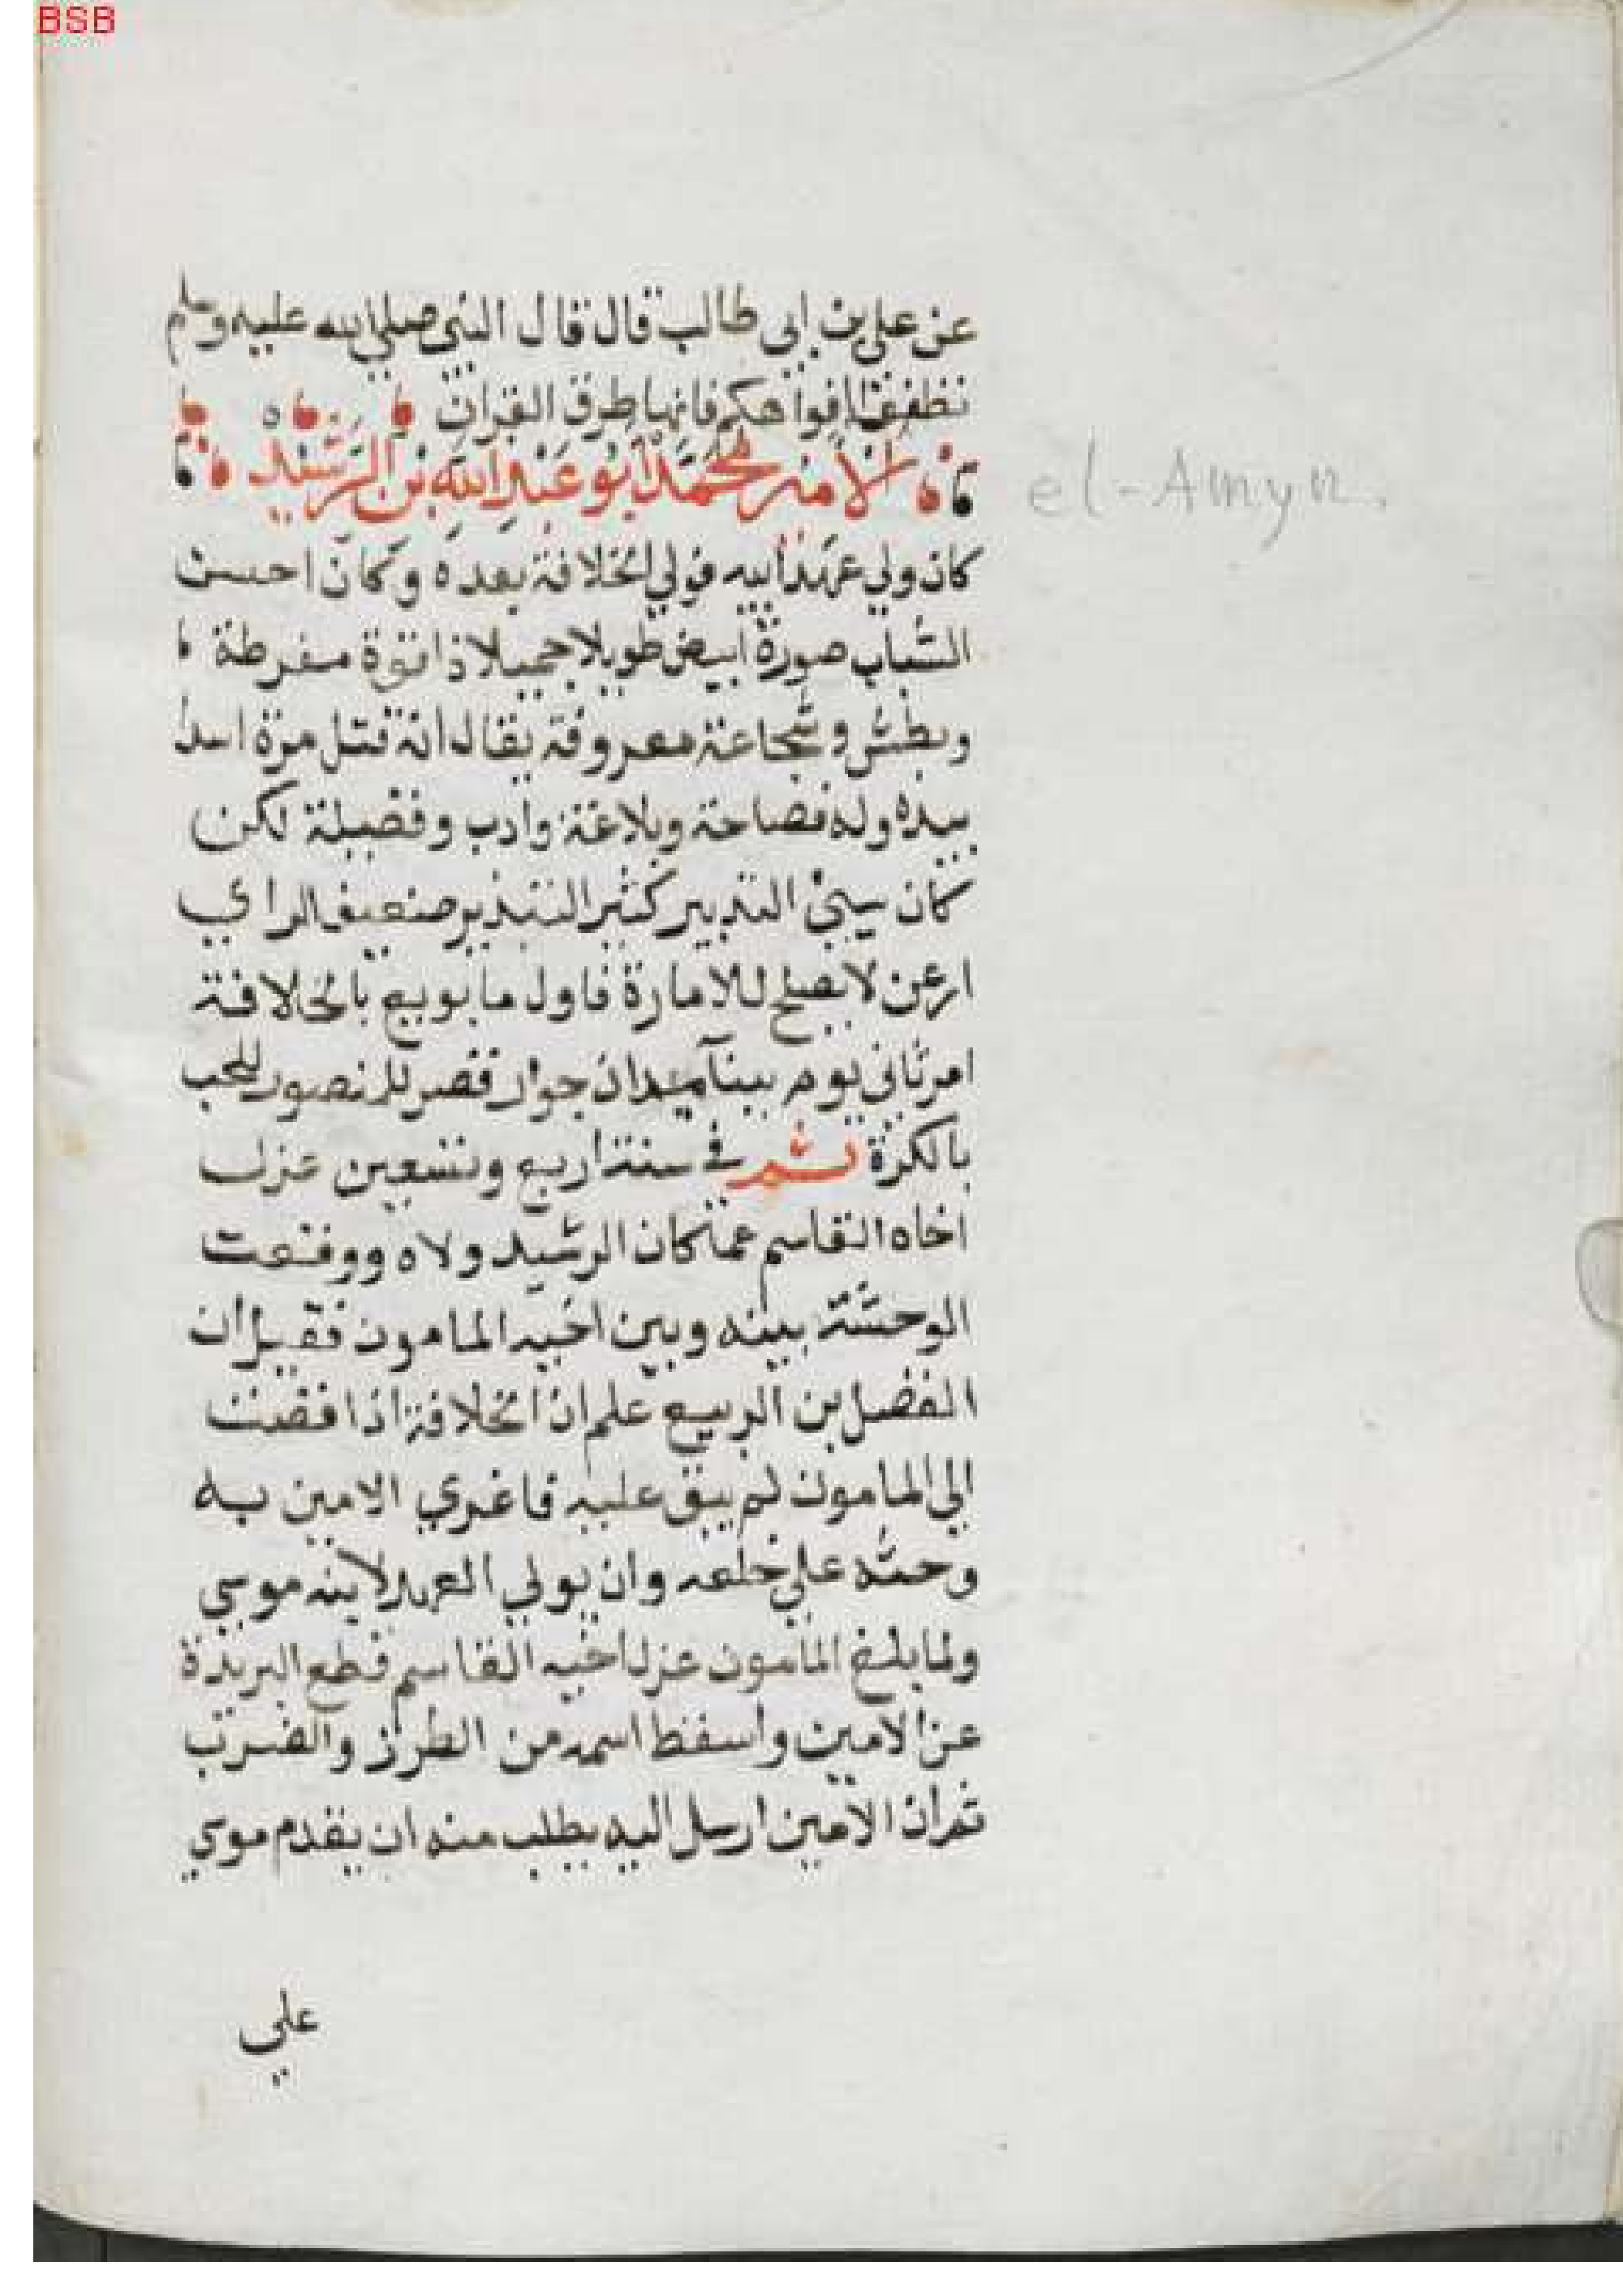 BSB
عن علي بن ابي طالب قال قال النبي صلي الله عليه وسلم
نظفوا افواهكم فانها طرق القران
الامين محمد ابو عبد الله بن الرشيد
el-Amyn.
كان ولي عهد ابيه فولي الخلافة بعده وكان احسن
الشباب صورة ابيض طويلا جميلا ذا قوة مفرطة
وبطش وشجاعة معروفة يقال انه قتل مرة اسدا
بيده وله فصاحة وبلاغة وادب وفضيلة لكن
كان سيئ التدبير كثير التبذير ضعيف الراي
ارعن لا يصلح للامارة فاول ما بويع بالخلافة
امر ثاني يوم ببنآ ميدان جوار قصر المنصور للعب
بالكرة ثم في سنة اربع وتسعين عزل
اخاه القاسم عما كان الرشيد ولاه ووقعت
الوحشة بينه وبين اخيه المامون فقيل ان
الفضل بن الربيع علم ان الخلافة اذا فضت
الي المامون لم يبق عليه فاغري الامين به
وحثه علي خلعه وان يولي العهد لابنه موسي
ولما بلغ المامون عزل اخيه القاسم قطع البريد
عن الامين واسقط اسمه من الطرز والضرب
ثم ان الامين ارسل اليه يطلب منه ان يقدم موسي
علي